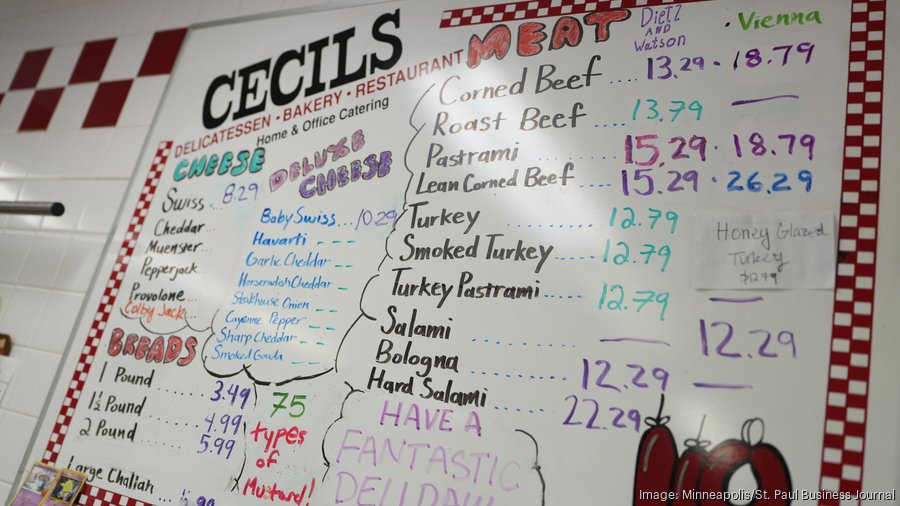 CECILS
DELICATESSEN • BAKERY • RESTAURANT
Home & Office Catering
CHEESE
Swiss... 8.29
Cheddar..
Muenster..
Pepperjack..
Provolone...
Colby Jack..
DELUXE
CHEESE
Baby Swiss... 10.29
Havarti ---
Garlic Cheddar --
Horseradish Cheddar --
Steakhouse Onion --
Cayenne Pepper --
Sharp Cheddar --
Smoked Gouda --
BREADS
1 Pound ...... 3.49
1½ Pound ...... 4.99
2 Pound ...... 5.99
Large Challah ...
75
types
of
Mustard!
MEAT Dietz AND Watson • Vienna
Corned Beef .... 13.29 • 18.79
Roast Beef .... 13.79 —
Pastrami ........ 15.29 • 18.79
Lean Corned Beef .... 15.29 • 26.29
Turkey ......... 12.79
Smoked Turkey ..... 12.79
Turkey Pastrami ..... 12.79 —
Salami ......... — 12.29
Bologna ......... 12.29 —
Hard Salami ...... 22.29
Honey Glazed
Turkey
$12.99
HAVE A
FANTASTIC
DELI DAY!
Image: Minneapolis/St. Paul Business Journal